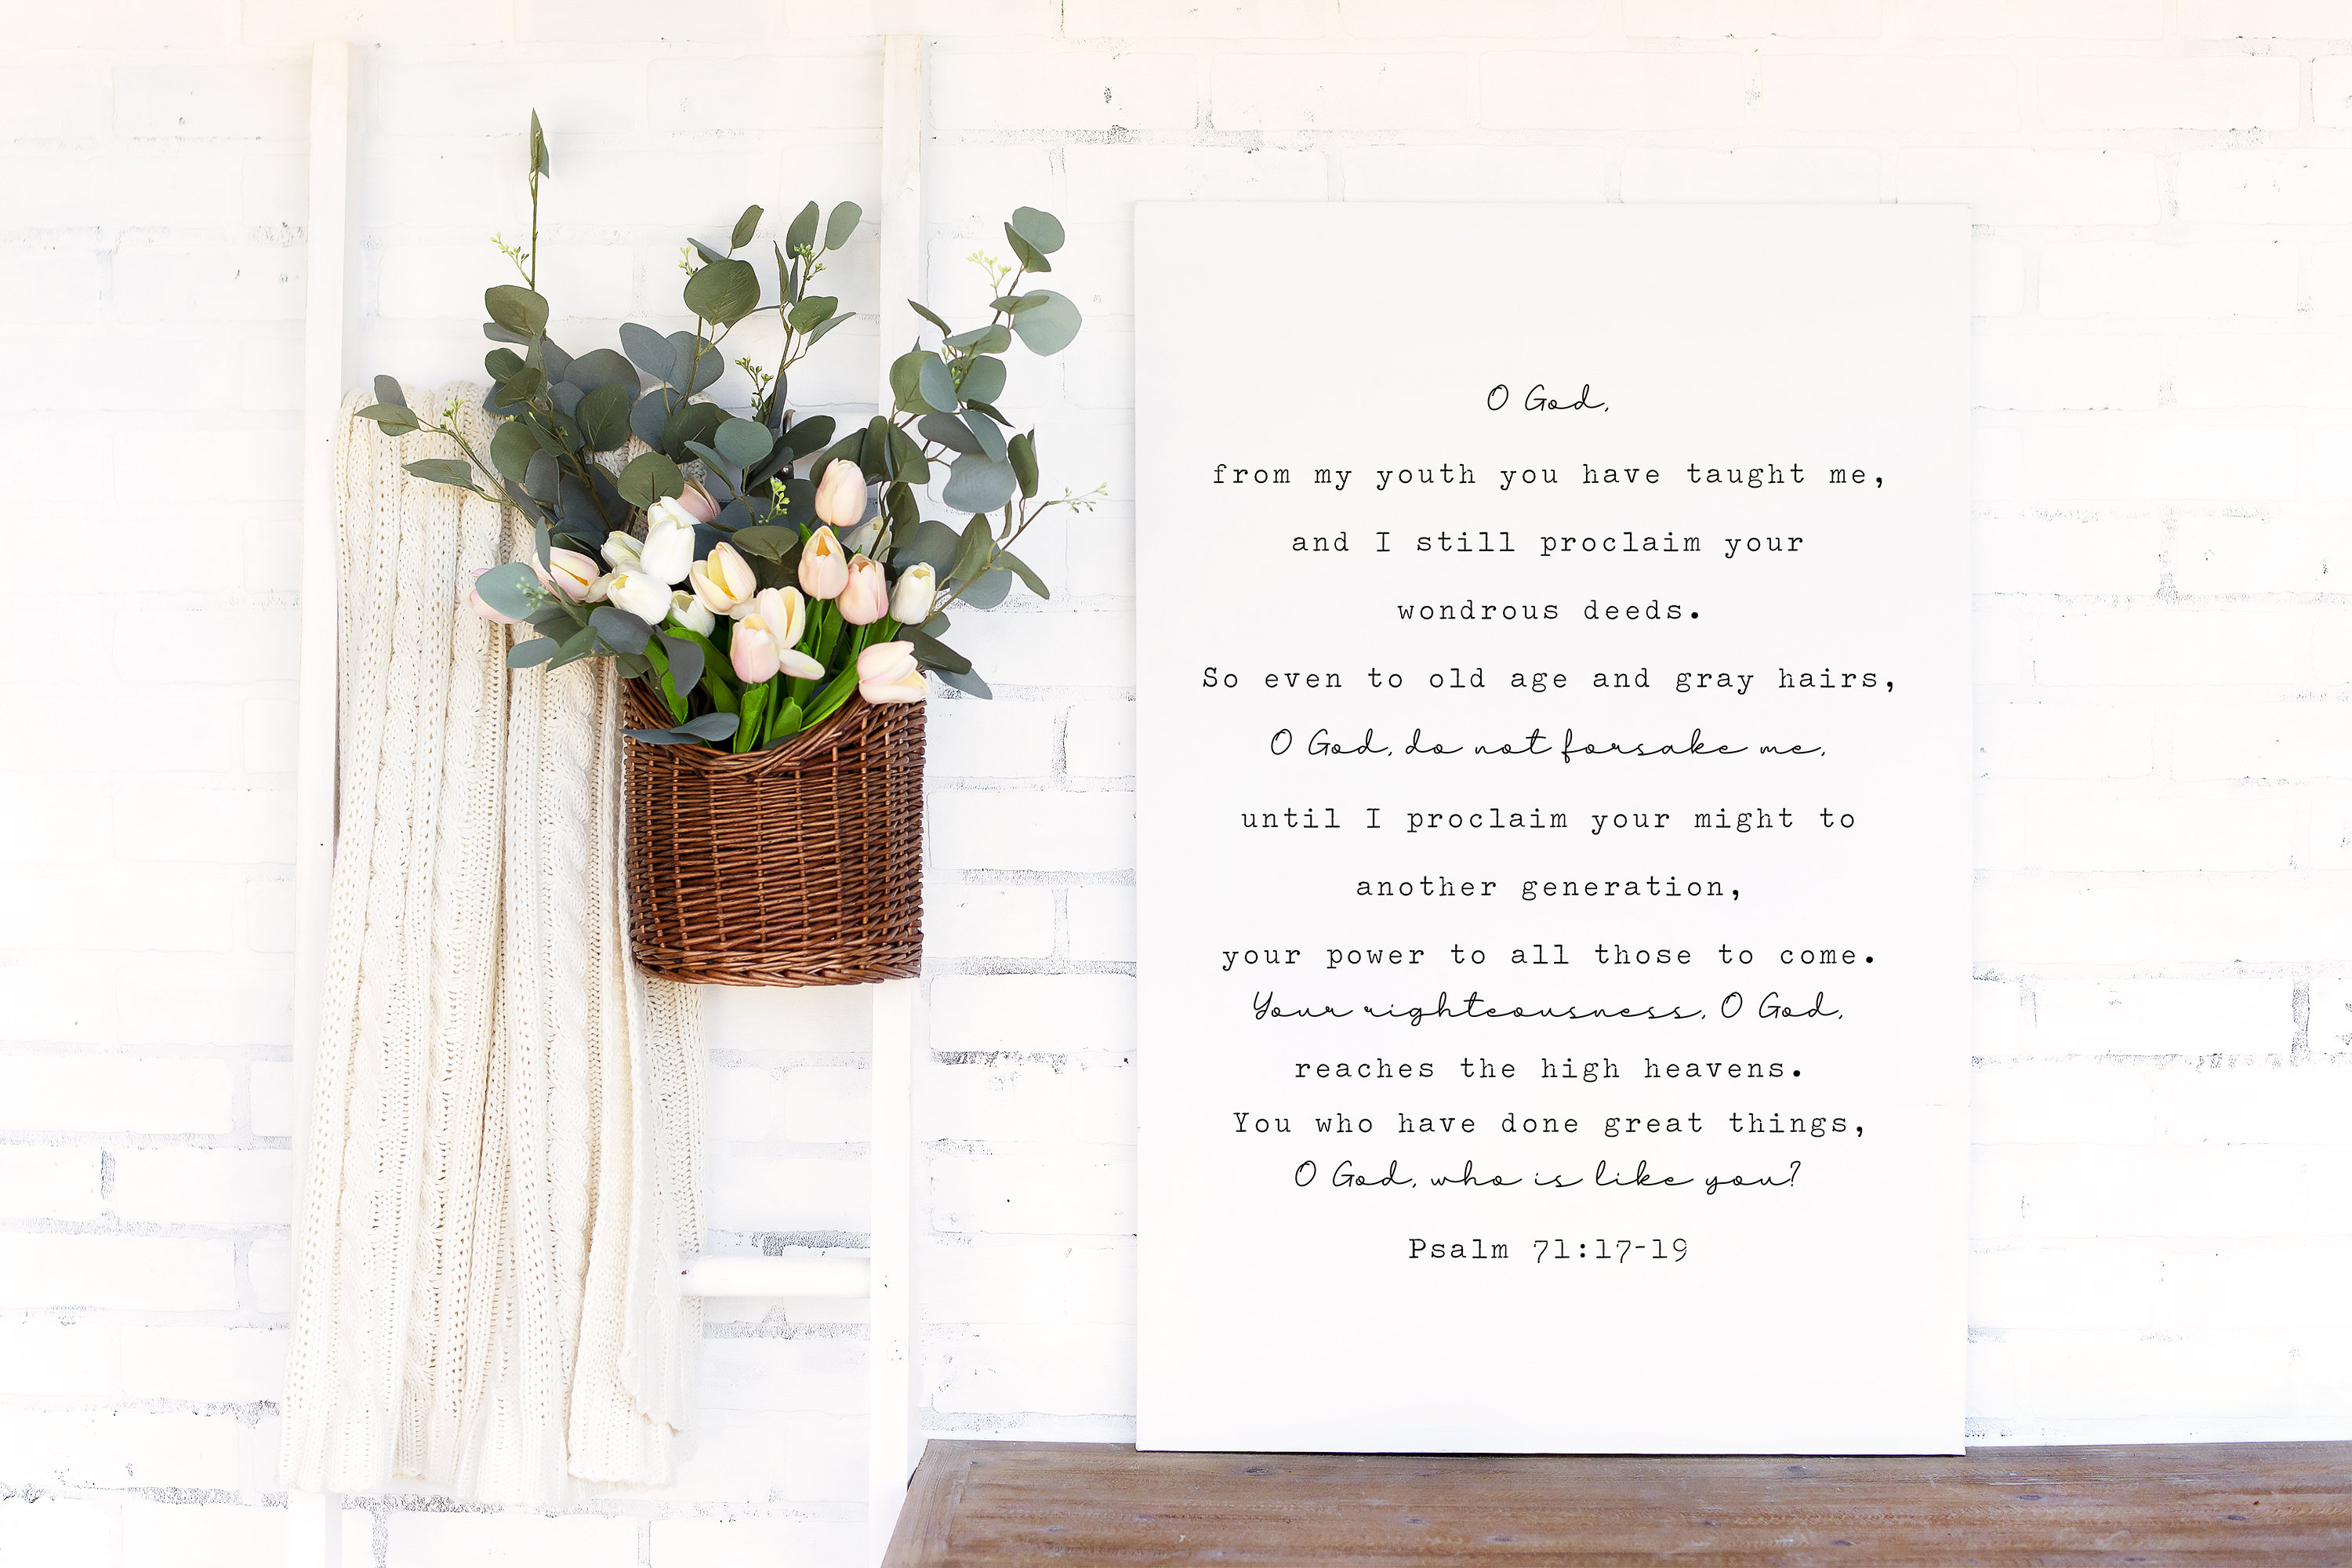 O God,
from my youth you have taught me,
and I still proclaim your
wondrous deeds.
So even to old age and gray hairs,
O God, do not forsake me,
until I proclaim your might to
another generation,
your power to all those to come.
Your righteousness, O God,
reaches the high heavens.
You who have done great things,
O God, who is like you?
Psalm 71:17-19